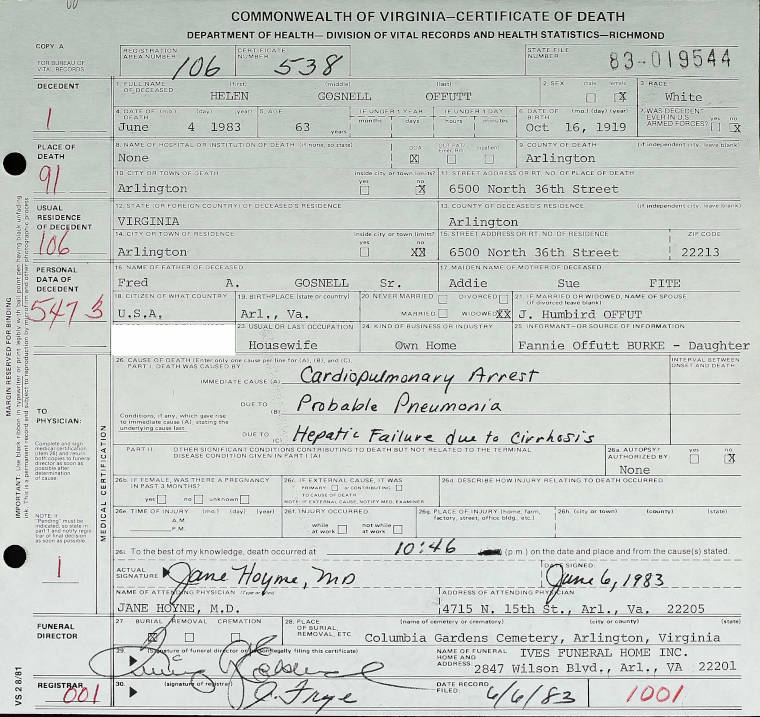 COMMONWEALTH OF VIRGINIA—CERTIFICATE OF DEATH
DEPARTMENT OF HEALTH— DIVISION OF VITAL RECORDS AND HEALTH STATISTICS—RICHMOND
COPY A
FOR BUREAU OF VITAL RECORDS
REGISTRATION AREA NUMBER 106 CERTIFICATE NUMBER 538 STATE FILE NUMBER 83-019544
DECEDENT
1
1. FULL NAME OF DECEASED (first) (middle) (last) 2. SEX male female 3. RACE
HELEN GOSNELL OFFUTT X White
4. DATE OF DEATH (mo.) (day) (year) 5. AGE IF UNDER 1 YEAR IF UNDER 1 DAY 6. DATE OF BIRTH (mo.) (day) (year) 7. WAS DECEDENT EVER IN U.S. ARMED FORCES? yes no
months days hours minutes
June 4 1983 63 years Oct 16, 1919 X
PLACE OF DEATH
91
8. NAME OF HOSPITAL OR INSTITUTION OF DEATH (if none, so state) 9. COUNTY OF DEATH (if independent city, leave blank)
None DOA X Inpatient Arlington
10. CITY OR TOWN OF DEATH inside city or town limits? yes no 11. STREET ADDRESS OR RT. NO. OF PLACE OF DEATH
Arlington X 6500 North 36th Street
USUAL RESIDENCE OF DECEDENT
106
12. STATE (OR FOREIGN COUNTRY) OF DECEASED'S RESIDENCE 13. COUNTY OF DECEASED'S RESIDENCE (if independent city, leave blank)
VIRGINIA Arlington
14. CITY OR TOWN OF RESIDENCE inside city or town limits? yes no 15. STREET ADDRESS OR RT. NO. OF RESIDENCE ZIP CODE
Arlington XX 6500 North 36th Street 22213
PERSONAL DATA OF DECEDENT
5473
16. NAME OF FATHER OF DECEASED 17. MAIDEN NAME OF MOTHER OF DECEASED
Fred A. GOSNELL Sr. Addie Sue FITE
18. CITIZEN OF WHAT COUNTRY 19. BIRTHPLACE (state or country) 20. NEVER MARRIED DIVORCED 21. IF MARRIED OR WIDOWED, NAME OF SPOUSE (if divorced leave blank)
U.S.A. Arl., Va. MARRIED WIDOWED XX J. Humbird OFFUT
23. USUAL OR LAST OCCUPATION 24. KIND OF BUSINESS OR INDUSTRY 25. INFORMANT—OR SOURCE OF INFORMATION
Housewife Own Home Fannie Offutt BURKE - Daughter
MARGIN RESERVED FOR BINDING
TO PHYSICIAN:
Complete and sign medical certification (item 26) and return both copies to funeral director as soon as possible after determination of cause
NOTE: If "Pending" must be indicated, so state in part 1 and notify registrar of final decision as soon as possible.
1
MEDICAL CERTIFICATION
26. CAUSE OF DEATH (Enter only one cause per line for (A), (B), and (C).) INTERVAL BETWEEN ONSET AND DEATH
PART I. DEATH WAS CAUSED BY:
IMMEDIATE CAUSE (A) Cardiopulmonary Arrest
DUE TO (B) Probable Pneumonia
Conditions, if any, which gave rise to immediate cause (A) stating the underlying cause last.
DUE TO (C) Hepatic Failure due to Cirrhosis
PART II. OTHER SIGNIFICANT CONDITIONS CONTRIBUTING TO DEATH BUT NOT RELATED TO THE TERMINAL DISEASE CONDITION GIVEN IN PART I (A) 26a. AUTOPSY? AUTHORIZED BY: yes no
None X
26b. IF FEMALE, WAS THERE A PREGNANCY IN PAST 3 MONTHS? 26c. IF EXTERNAL CAUSE, IT WAS 26d. DESCRIBE HOW INJURY RELATING TO DEATH OCCURRED
PRIMARY or CONTRIBUTING
TO CAUSE OF DEATH
yes no unknown NOTE: IF EXTERNAL CAUSE, NOTIFY MED. EXAMINER
26e. TIME OF INJURY (mo.) (day) (year) 26f. INJURY OCCURRED 26g. PLACE OF INJURY (home, farm, factory, street, office bldg., etc.) 26h. (city or town) (county) (state)
A.M. while at work not while at work
P.M.
26i. To the best of my knowledge, death occurred at 10:46 (p.m.) on the date and place and from the cause(s) stated.
ACTUAL SIGNATURE Jane Hoyme, MD DATE SIGNED: June 6, 1983
NAME OF ATTENDING PHYSICIAN (Type or Print) ADDRESS OF ATTENDING PHYSICIAN
JANE HOYNE, M.D. 4715 N. 15th St., Arl., Va. 22205
FUNERAL DIRECTOR
27. BURIAL REMOVAL CREMATION 28. PLACE OF BURIAL, REMOVAL, ETC. (name of cemetery or crematory) (city or county) (state)
X Columbia Gardens Cemetery, Arlington, Virginia
29. (Signature of funeral director or person legally filing this certificate) NAME OF FUNERAL HOME AND ADDRESS: IVES FUNERAL HOME INC.
2847 Wilson Blvd., Arl., VA 22201
REGISTRAR
001
30. (signature of registrar) DATE RECORD FILED: 6/6/83 1001
VS 2 8/81